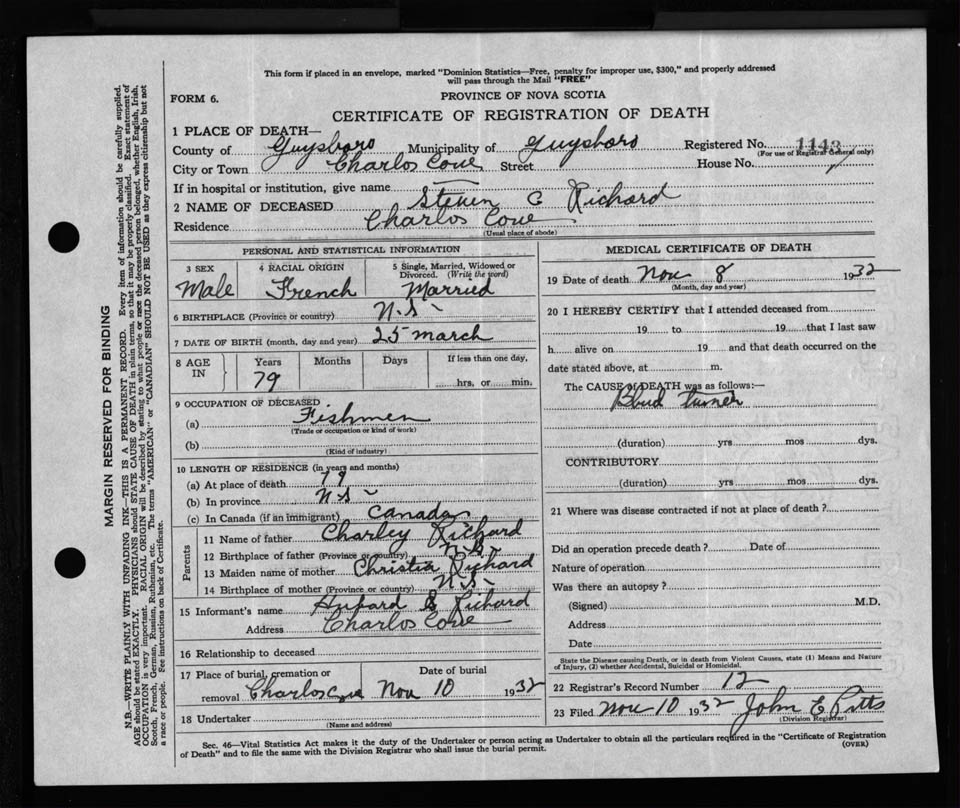 This form if placed in an envelope, marked "Dominion Statistics—Free, penalty for improper use, $300," and properly addressed
will pass through the Mail "FREE"
FORM 6.
PROVINCE OF NOVA SCOTIA
CERTIFICATE OF REGISTRATION OF DEATH
1 PLACE OF DEATH—
County of Guysboro Municipality of Guysboro Registered No. 1143
(For use of Registrar General only)
City or Town Charlos Cove Street House No.
If in hospital or institution, give name
2 NAME OF DECEASED Steven C Richard
Residence Charlos Cove
(Usual place of abode)
PERSONAL AND STATISTICAL INFORMATION
3 SEX 4 RACIAL ORIGIN 5 Single, Married, Widowed or
Divorced. (Write the word)
Male French Married
6 BIRTHPLACE (Province or country) N.S.
7 DATE OF BIRTH (month, day and year) 25 march
8 AGE IN Years Months Days If less than one day,
79 hrs, or min.
9 OCCUPATION OF DECEASED
(a) Fishmen
(Trade or occupation or kind of work)
(b)
(Kind of industry)
10 LENGTH OF RESIDENCE (in years and months)
(a) At place of death 79
(b) In province N.S
(c) In Canada (if an immigrant) Canada
Parents
11 Name of father Charley Richard
12 Birthplace of father (Province or country) N.S.
13 Maiden name of mother Richard
14 Birthplace of mother (Province or country) N.S.
15 Informant's name Richard
Address Charlos Cove
16 Relationship to deceased
17 Place of burial, cremation or Date of burial
removal Charlos Cove Nov 10 1932
18 Undertaker
(Name and address)
MEDICAL CERTIFICATE OF DEATH
19 Date of death Nov 8 1932
(Month, day and year)
20 I HEREBY CERTIFY that I attended deceased from
19 to 19 that I last saw
h alive on 19 and that death occurred on the
date stated above, at m.
The CAUSE of DEATH was as follows:—
(duration) yrs mos dys.
CONTRIBUTORY
(duration) yrs mos dys.
21 Where was disease contracted if not at place of death?
Did an operation precede death? Date of
Nature of operation
Was there an autopsy?
(Signed) M.D.
Address
Date
State the Disease causing Death, or in death from Violent Causes, state (1) Means and Nature
of Injury, (2) whether Accidental, Suicidal or Homicidal.
22 Registrar's Record Number 12
23 Filed Nov 10 1932 John E Pitts
(Division Registrar)
Sec. 46—Vital Statistics Act makes it the duty of the Undertaker or person acting as Undertaker to obtain all the particulars required in the "Certificate of Registration
of Death" and to file the same with the Division Registrar who shall issue the burial permit.
(OVER)
MARGIN RESERVED FOR BINDING
N.B.—WRITE PLAINLY WITH UNFADING INK—THIS IS A PERMANENT RECORD. Every item of information should be carefully supplied.
AGE should be stated EXACTLY. PHYSICIANS should STATE CAUSE OF DEATH in plain terms, so that it may be properly classified. Exact statement of
OCCUPATION is very important. RACIAL ORIGIN will be described by stating to what people or race the deceased person belonged, whether English, Irish,
Scotch, French, German, Russian, Ruthenian, etc. The terms "AMERICAN" or "CANADIAN" SHOULD NOT BE USED as they express citizenship but not
a race or people. See instructions on back of Certificate.